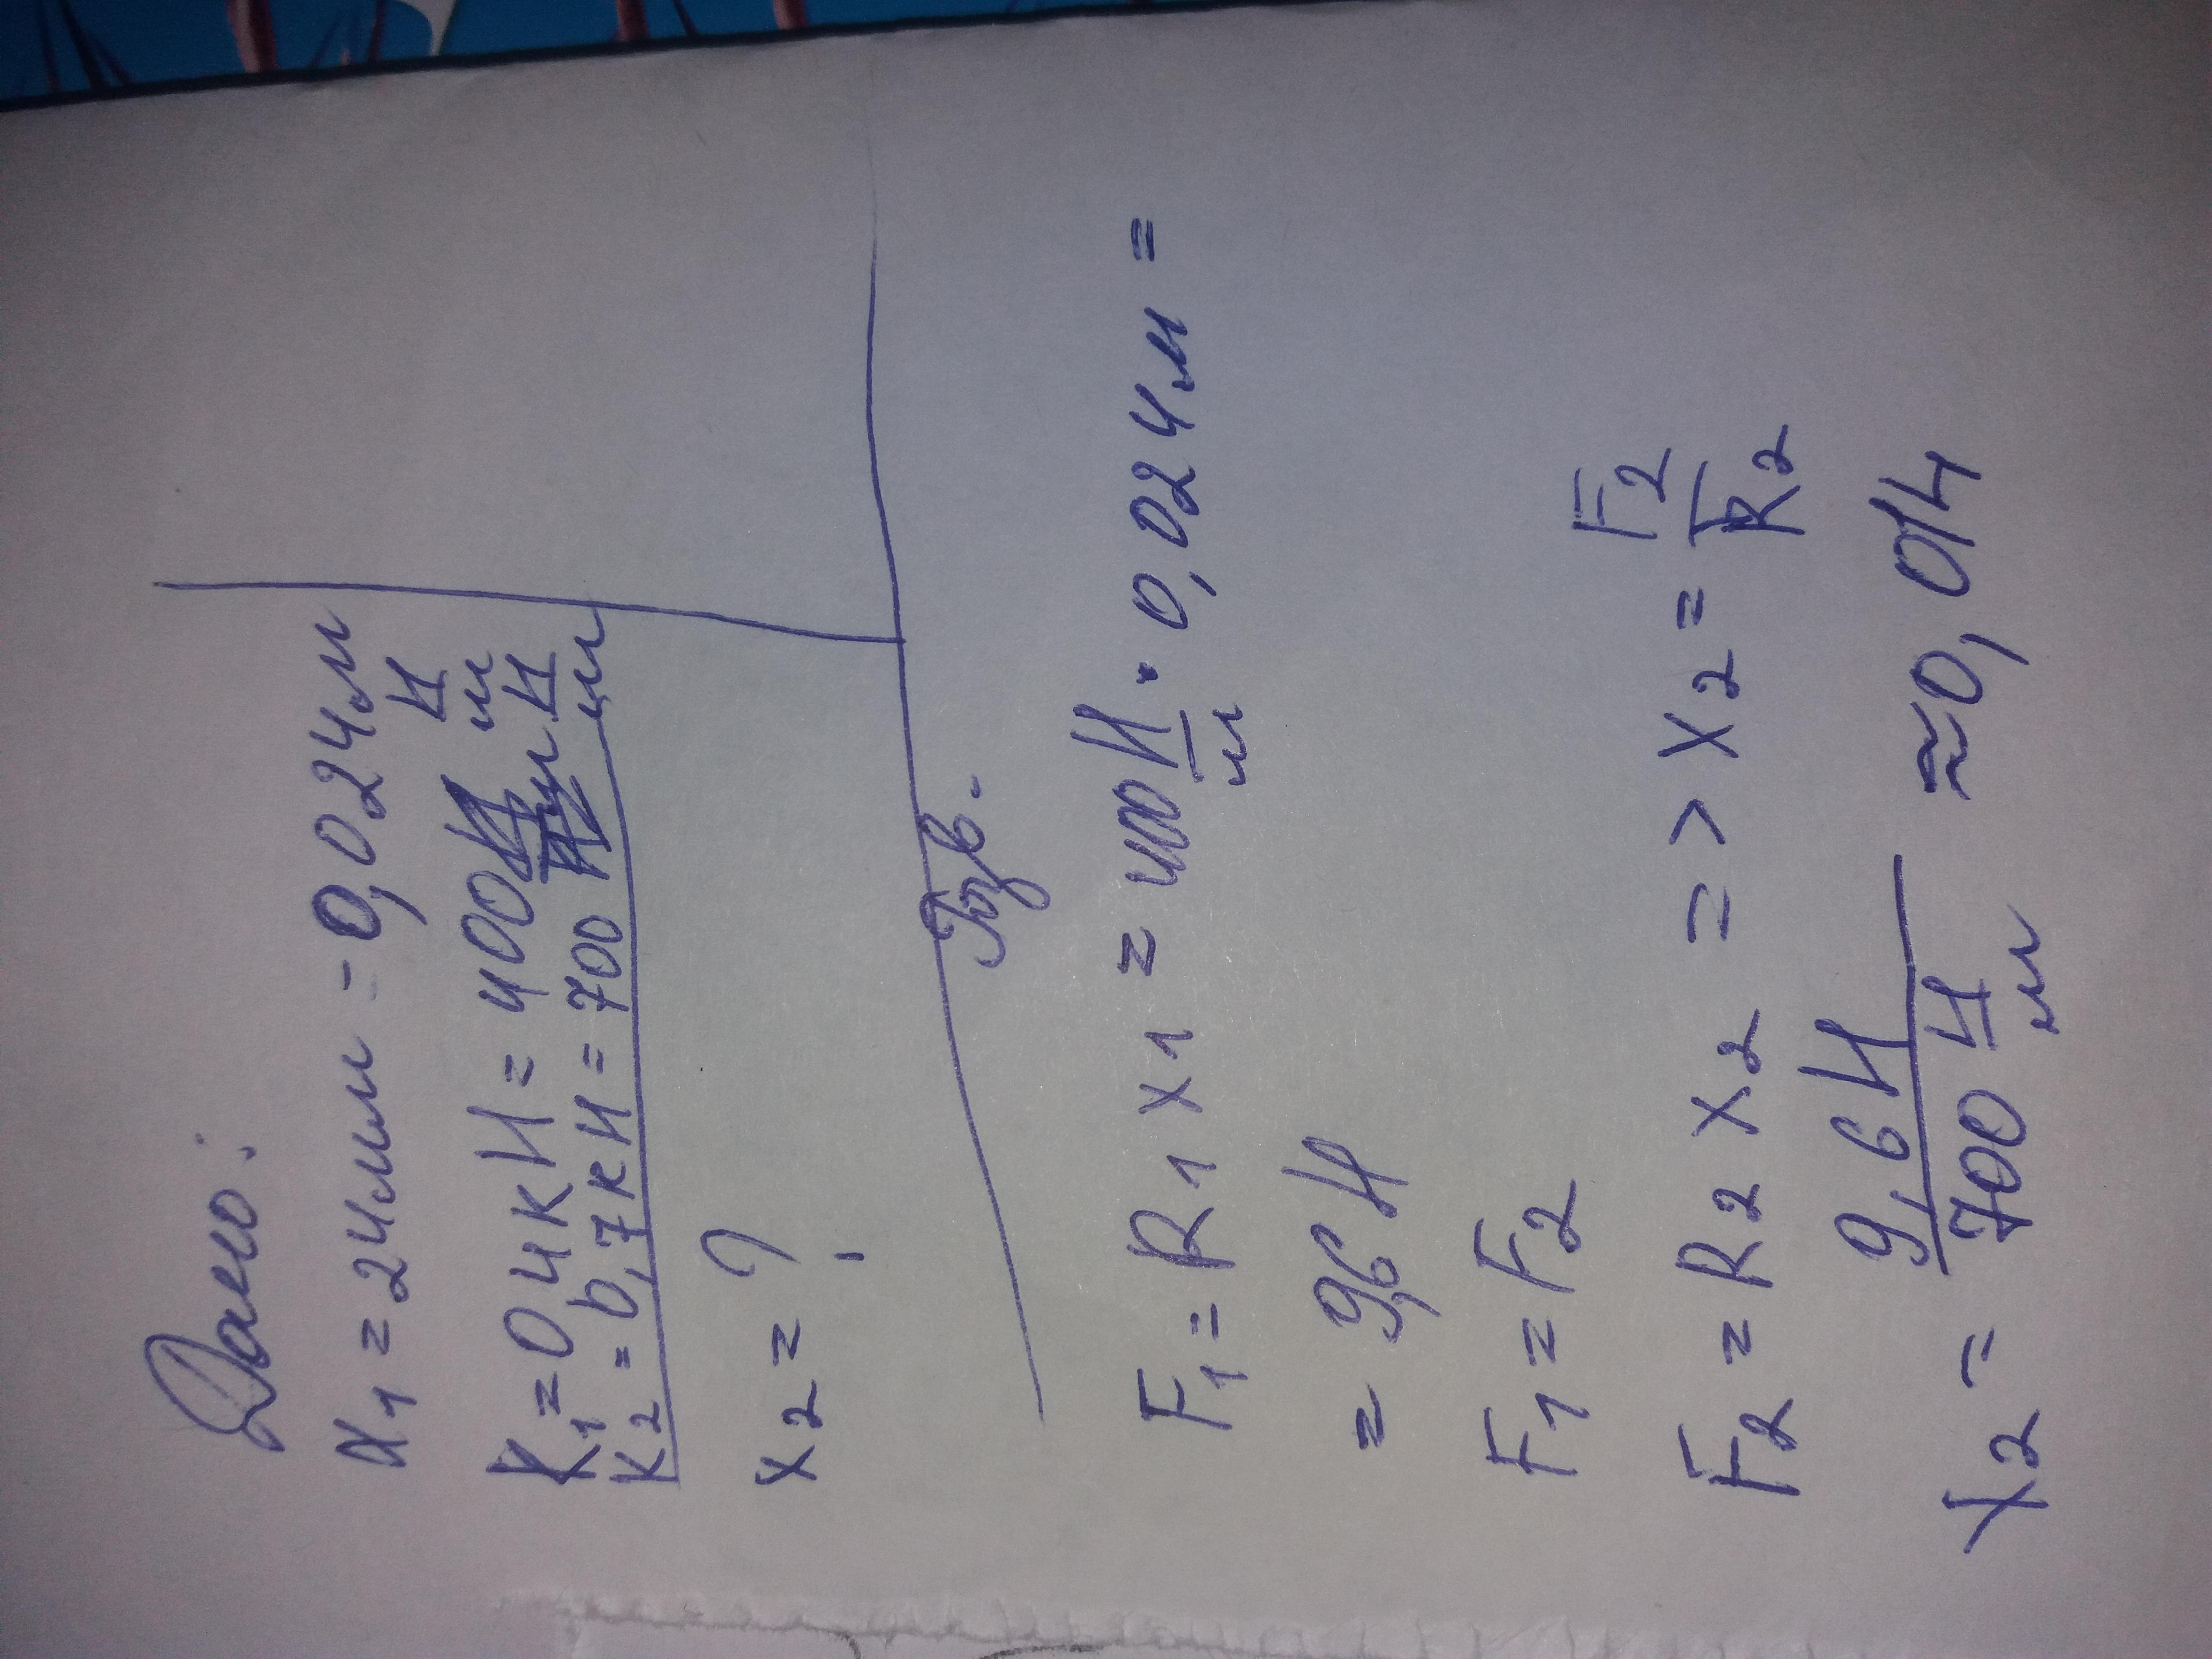 Дано:
x₁ = 24мм = 0,024м
K₁ = 0 4кН = 400 Н/м
K₂ = 0,7кН = 700 Н/м
x₂ = ?
Розв.
F₁ = R₁ x₁ = 400 Н/м · 0,024м =
= 9,6 Н
F₁ = F₂
F₂ = R₂ x₂ => x₂ = F₂/R₂
x₂ = 9,6 Н / 700 Н/м ≈ 0,014